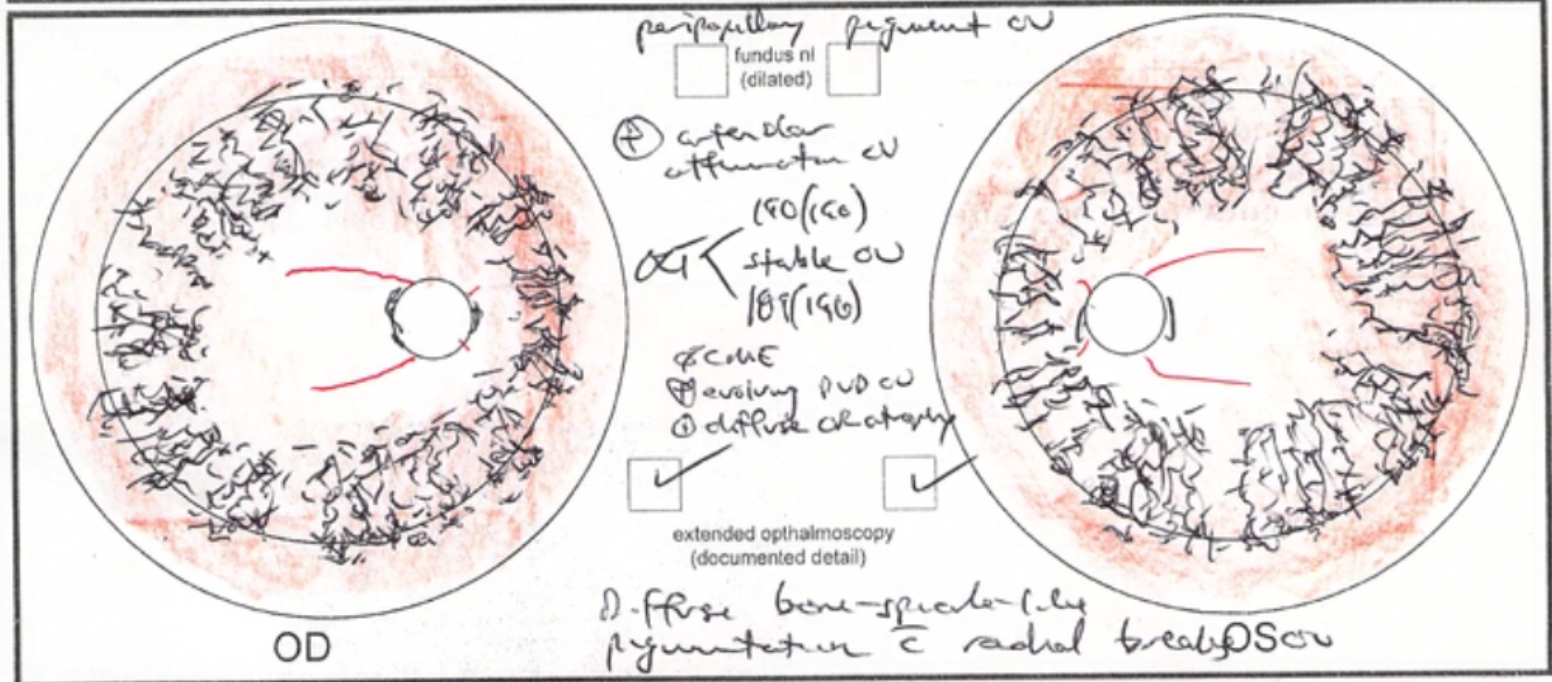 peripapillary pigment OU
fundus nl
(dilated)
⊕ arteriolar
attenuation OU
OCT <
stable OU
189(190)
∅ CME
⊕ evolving PVD OU
⊕ diffuse atrophy
extended opthalmoscopy
(documented detail)
Diffuse bone-spicule-like
pigmentation c̄ radial breaks OU
OD
OS